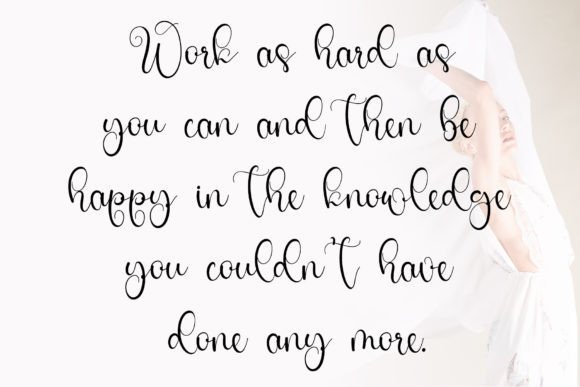 Work as hard as
you can and then be
happy in the knowledge
you couldn't have
done any more.